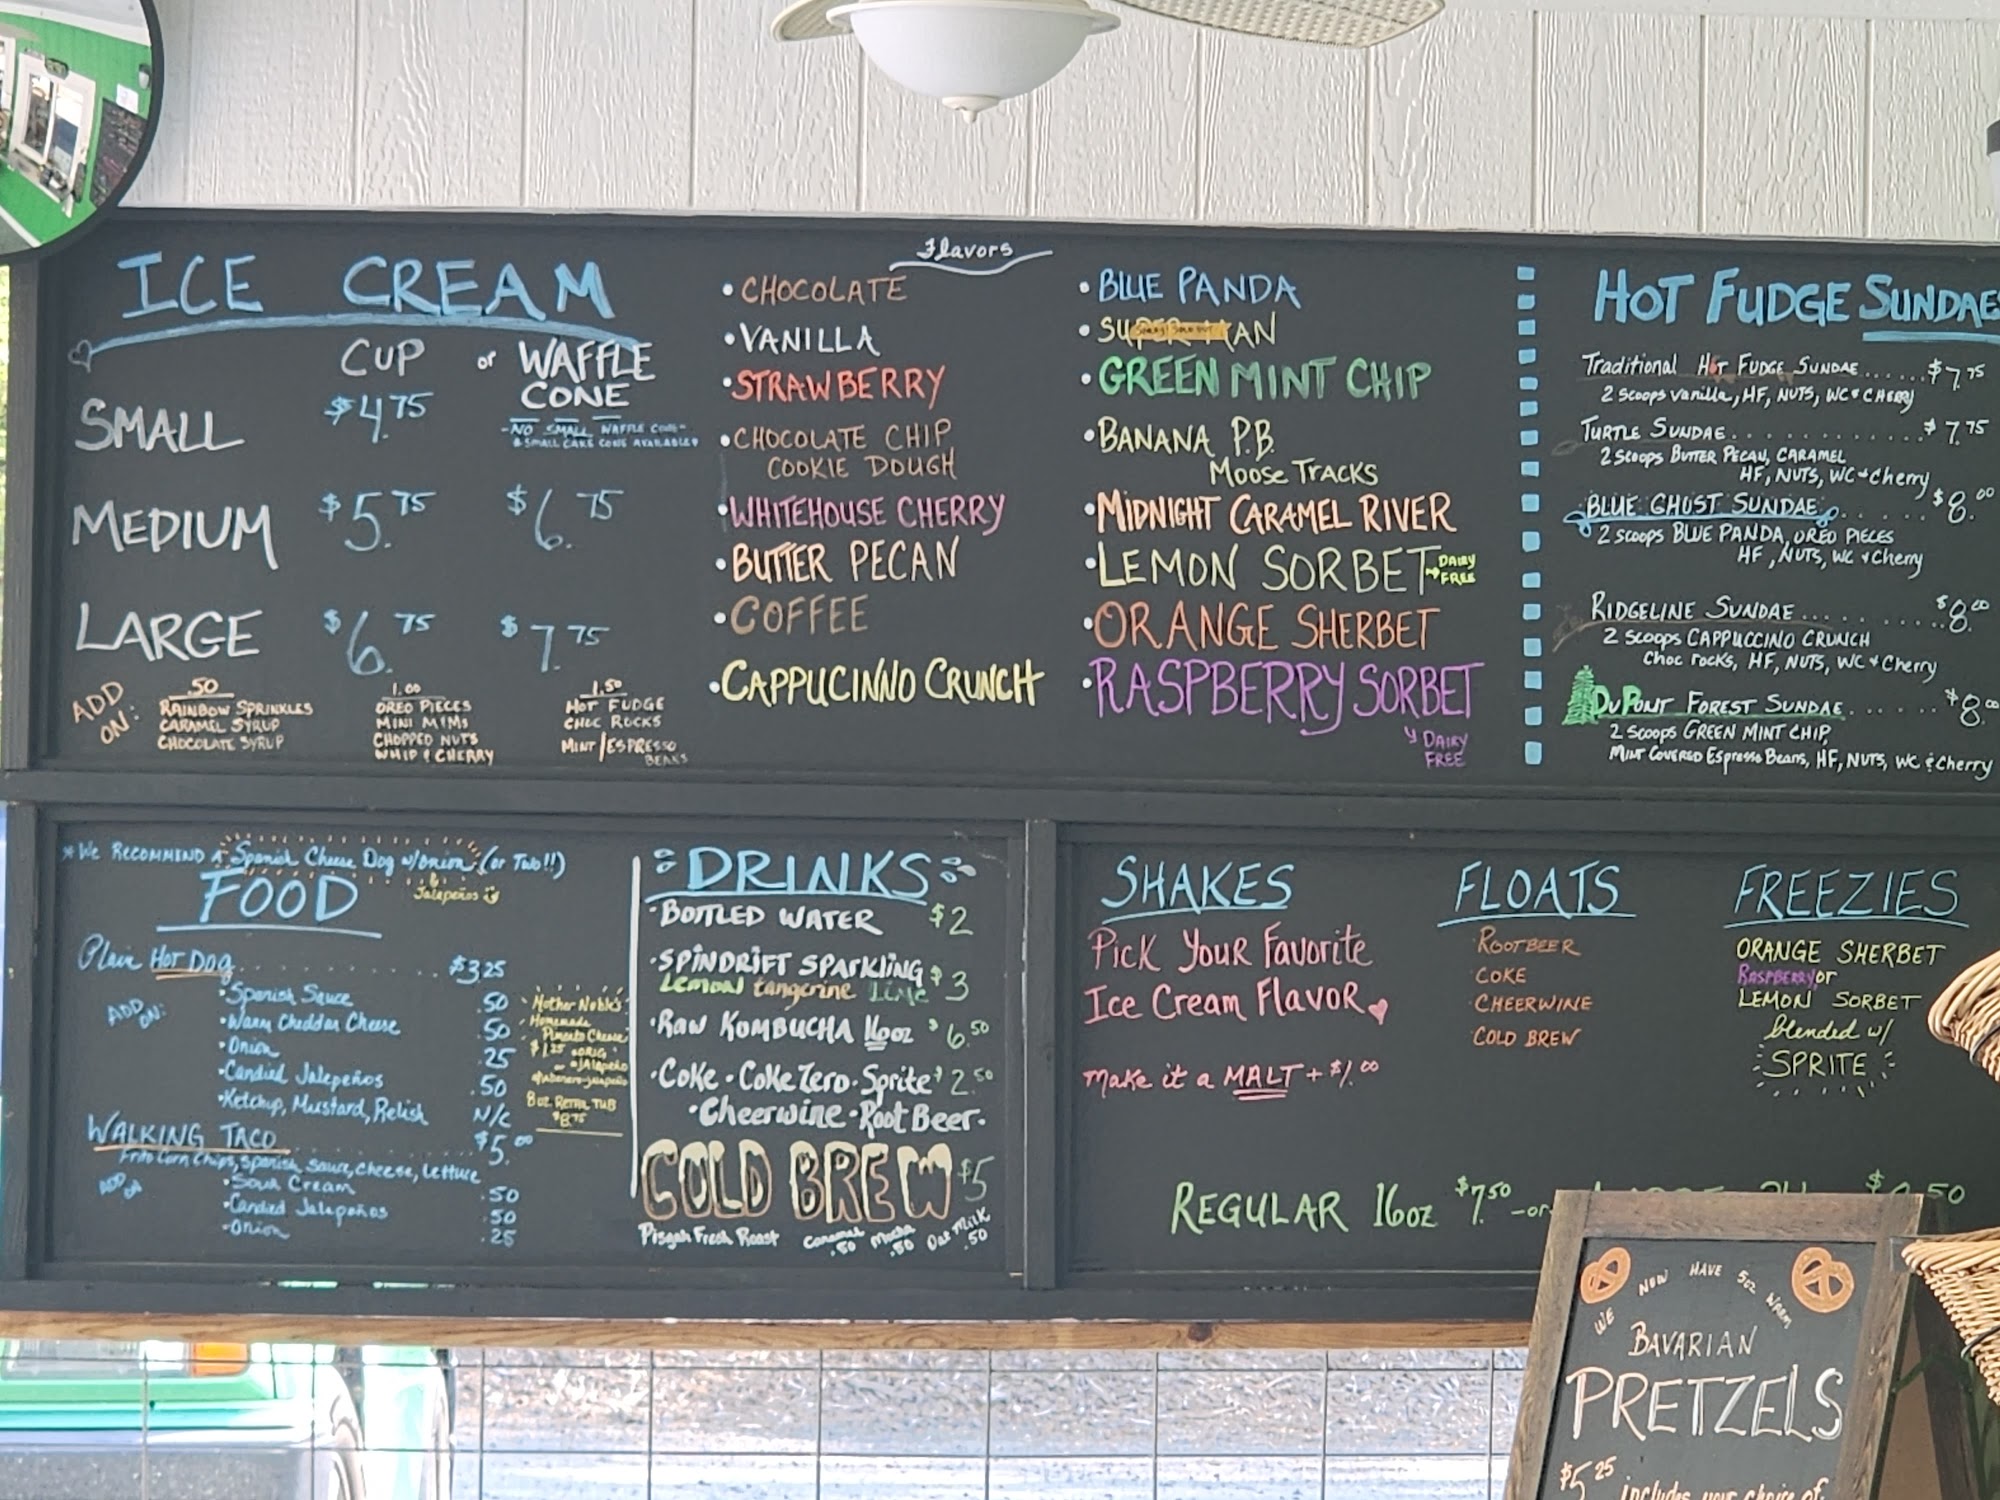 ICE CREAM
CUP or WAFFLE CONE
SMALL $4.75
-NO SMALL WAFFLE CONE-
SMALL CAKE CONE AVAILABLE
MEDIUM $5.75 $6.75
LARGE $6.75 $7.75
ADD ON:
.50
RAINBOW SPRINKLES
CARAMEL SYRUP
CHOCOLATE SYRUP
1.00
OREO PIECES
MINI M&Ms
CHOPPED NUTS
WHIP & CHERRY
1.50
HOT FUDGE
CHOC ROCKS
MINT/ESPRESSO
BEANS
Flavors
• CHOCOLATE
• VANILLA
• STRAWBERRY
• CHOCOLATE CHIP
COOKIE DOUGH
• WHITEHOUSE CHERRY
• BUTTER PECAN
• COFFEE
• CAPPUCINNO CRUNCH
• BLUE PANDA
• SUPERMAN
SORRY! SOLD OUT
• GREEN MINT CHIP
• BANANA P.B.
MOOSE TRACKS
• MIDNIGHT CARAMEL RIVER
• LEMON SORBET → DAIRY FREE
• ORANGE SHERBET
• RASPBERRY SORBET
DAIRY
FREE
HOT FUDGE SUNDAES
Traditional HOT FUDGE SUNDAE......$7.75
2 scoops vanilla, HF, NUTS, WC & CHERRY
TURTLE SUNDAE............$7.75
2 scoops BUTTER PECAN, CARAMEL
HF, NUTS, WC & Cherry
BLUE GHOST SUNDAE.......$8.00
2 scoops BLUE PANDA, OREO PIECES
HF, NUTS, WC & Cherry
RIDGELINE SUNDAE.......$8.00
2 scoops CAPPUCCINO CRUNCH
Choc rocks, HF, NUTS, WC & Cherry
DuPONT FOREST SUNDAE......$8.00
2 scoops GREEN MINT CHIP,
MINT COVERED Espresso Beans, HF, NUTS, WC & Cherry
*WE RECOMMEND A Spanish Cheese Dog w/onion (or Two!!)
& Jalapeños
FOOD
Plain HOT DOG..........$3.25
ADD ON:
• Spanish Sauce .50
• Warm Cheddar Cheese .50
• Onion .25
• Candied Jalepeños .50
• Ketchup, Mustard, Relish N/C
Mother Noble's
Homemade
Pimento Cheese
$1.25 • ORIG
or • JAlApeño
• Habanero-jalapeño
8 oz RETAIL TUB
$8.75
WALKING TACO..........$5.00
Frito Corn Chips, Spanish Sauce, cheese, Lettuce
ADD ON
• Sour Cream .50
• Candied Jalapeños .50
• Onion .25
DRINKS
• BOTTLED WATER $2
• SPINDRIFT SPARKLING $3
Lemon tangerine Lime
• RAW KOMBUCHA 16oz $6.50
• Coke • Coke Zero • Sprite $2.50
• Cheerwine • Root Beer •
COLD BREW $5
Pisgah Fresh Roast
Caramel .50
Mocha .50
Oat Milk .50
SHAKES
Pick Your Favorite
Ice Cream Flavor
Make it a MALT + $1.00
FLOATS
ROOTBEER
COKE
CHEERWINE
COLD BREW
FREEZIES
ORANGE SHERBET
RASPBERRY or
LEMON SORBET
blended w/
SPRITE
REGULAR 16oz $7.50 -or-
WE NOW HAVE 5oz WARM
BAVARIAN
PRETZELS
$5.25 includes your choice of